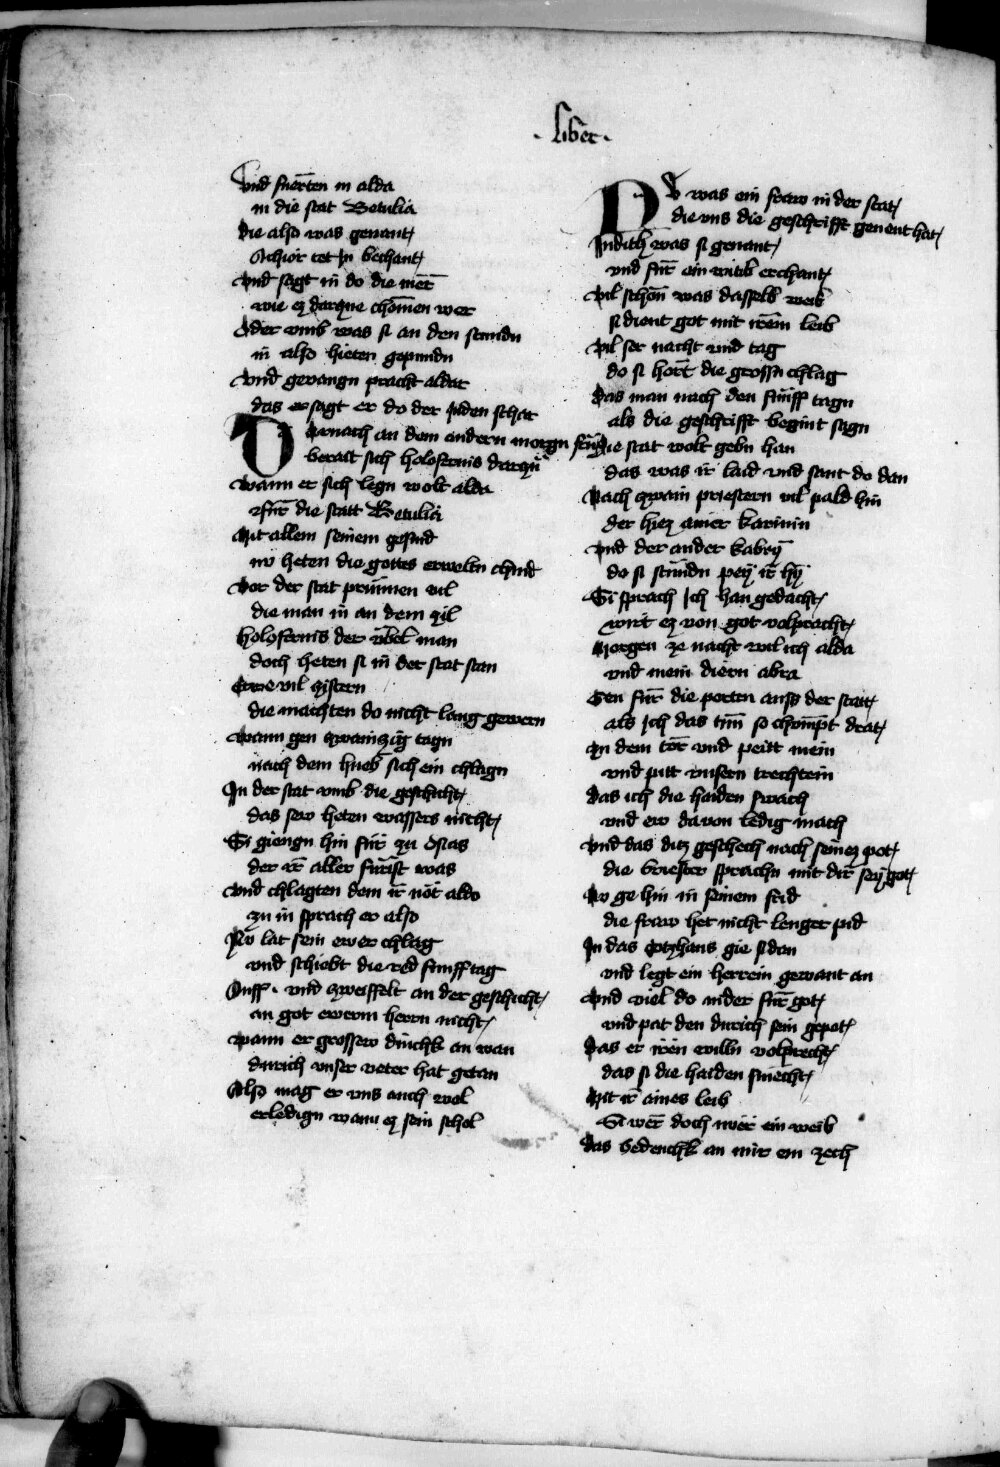 · liber ·
Vnd fuerten in alda
in die stat Betulia
die also was genant
Achior tet in bechant
Vnd sagt in do die mer
wie ez darzue chomen wer
Oder vmb was si an den stundn
in also hieten gepundn
Vnd gevangn pracht aldar
das er sagt er do der juden schar
Darnach an dem andern morgn frue
berait sich holofernis darzu
wann er sich legn wolt alda
fur die statt Betulia
Mit allem seinem gesind
nv heten die gottes erweltn chind
Vor der stat prunnen vil
die man in an dem zil
holofernis der vbel man
doch heten si in der stat stan
Etwe vil zistern
die machten do nicht lang gewern
wann gen zwainzig tagn
nach dem hueb sich ein chlagn
In der stat vmb die geschicht
das sew heten wassers nicht
Si giengn hin fur zu Osias
der ir aller furist was
Vnd chlagten dem ir not aldo
zu in sprach er also
Nv lat sein ewer chlag
vnd schiebt die red funff tag
Auff · vnd zweiffelt an der geschicht
an got ewerm herrn nicht
wann er grossew dinchk an wan
durich vnser veter hat getan
Also mag er vns auch wol
erledign wann ez sein schol
Nv was ein fraw in der stat
die vns die geschrifft genent hat
Judith was si genant
vnd fur ein witib erchant
Vil schon was dasselb weib
si dient got mit irem leib
Vil ser nacht vnd tag
do si hort die grossn chlag
Das man nach den funff tagn
als die geschrifft begint sagn
die stat wolt gebn han
das was ir laid vnd sant do dan
Nach zwain priestern vil pald hin
der hiez ainer karinin
Vnd der ander kabry
do si stundn pey ir hy
Si sprach ich han gedacht
wirt ez von got volpracht
Morgen ze nacht wil ich alda
vnd mein diern abra
Gen fur die porten auss der stat
als ich das tun so chompt drat
In dem tor vnd peitt mein
vnd pitt vnsern trechtein
das ich die haiden swach
vnd ew davon ledig mach
Vnd das ditz geschech nach seinez pot
die briester sprachn mit dir sey got
Nv ge hin in seinem frid
die fraw het nicht lenger pid
In das petzhaus gie si dan
vnd legt ein herrein gewant an
Vnd viel do nider fur got
vnd pat den durich sein gepot
Das er iren willn volprecht
das si die haiden smecht
Mit ir aines leib
Si wer doch nuer ein weib
das bedenchk an mir ein zech